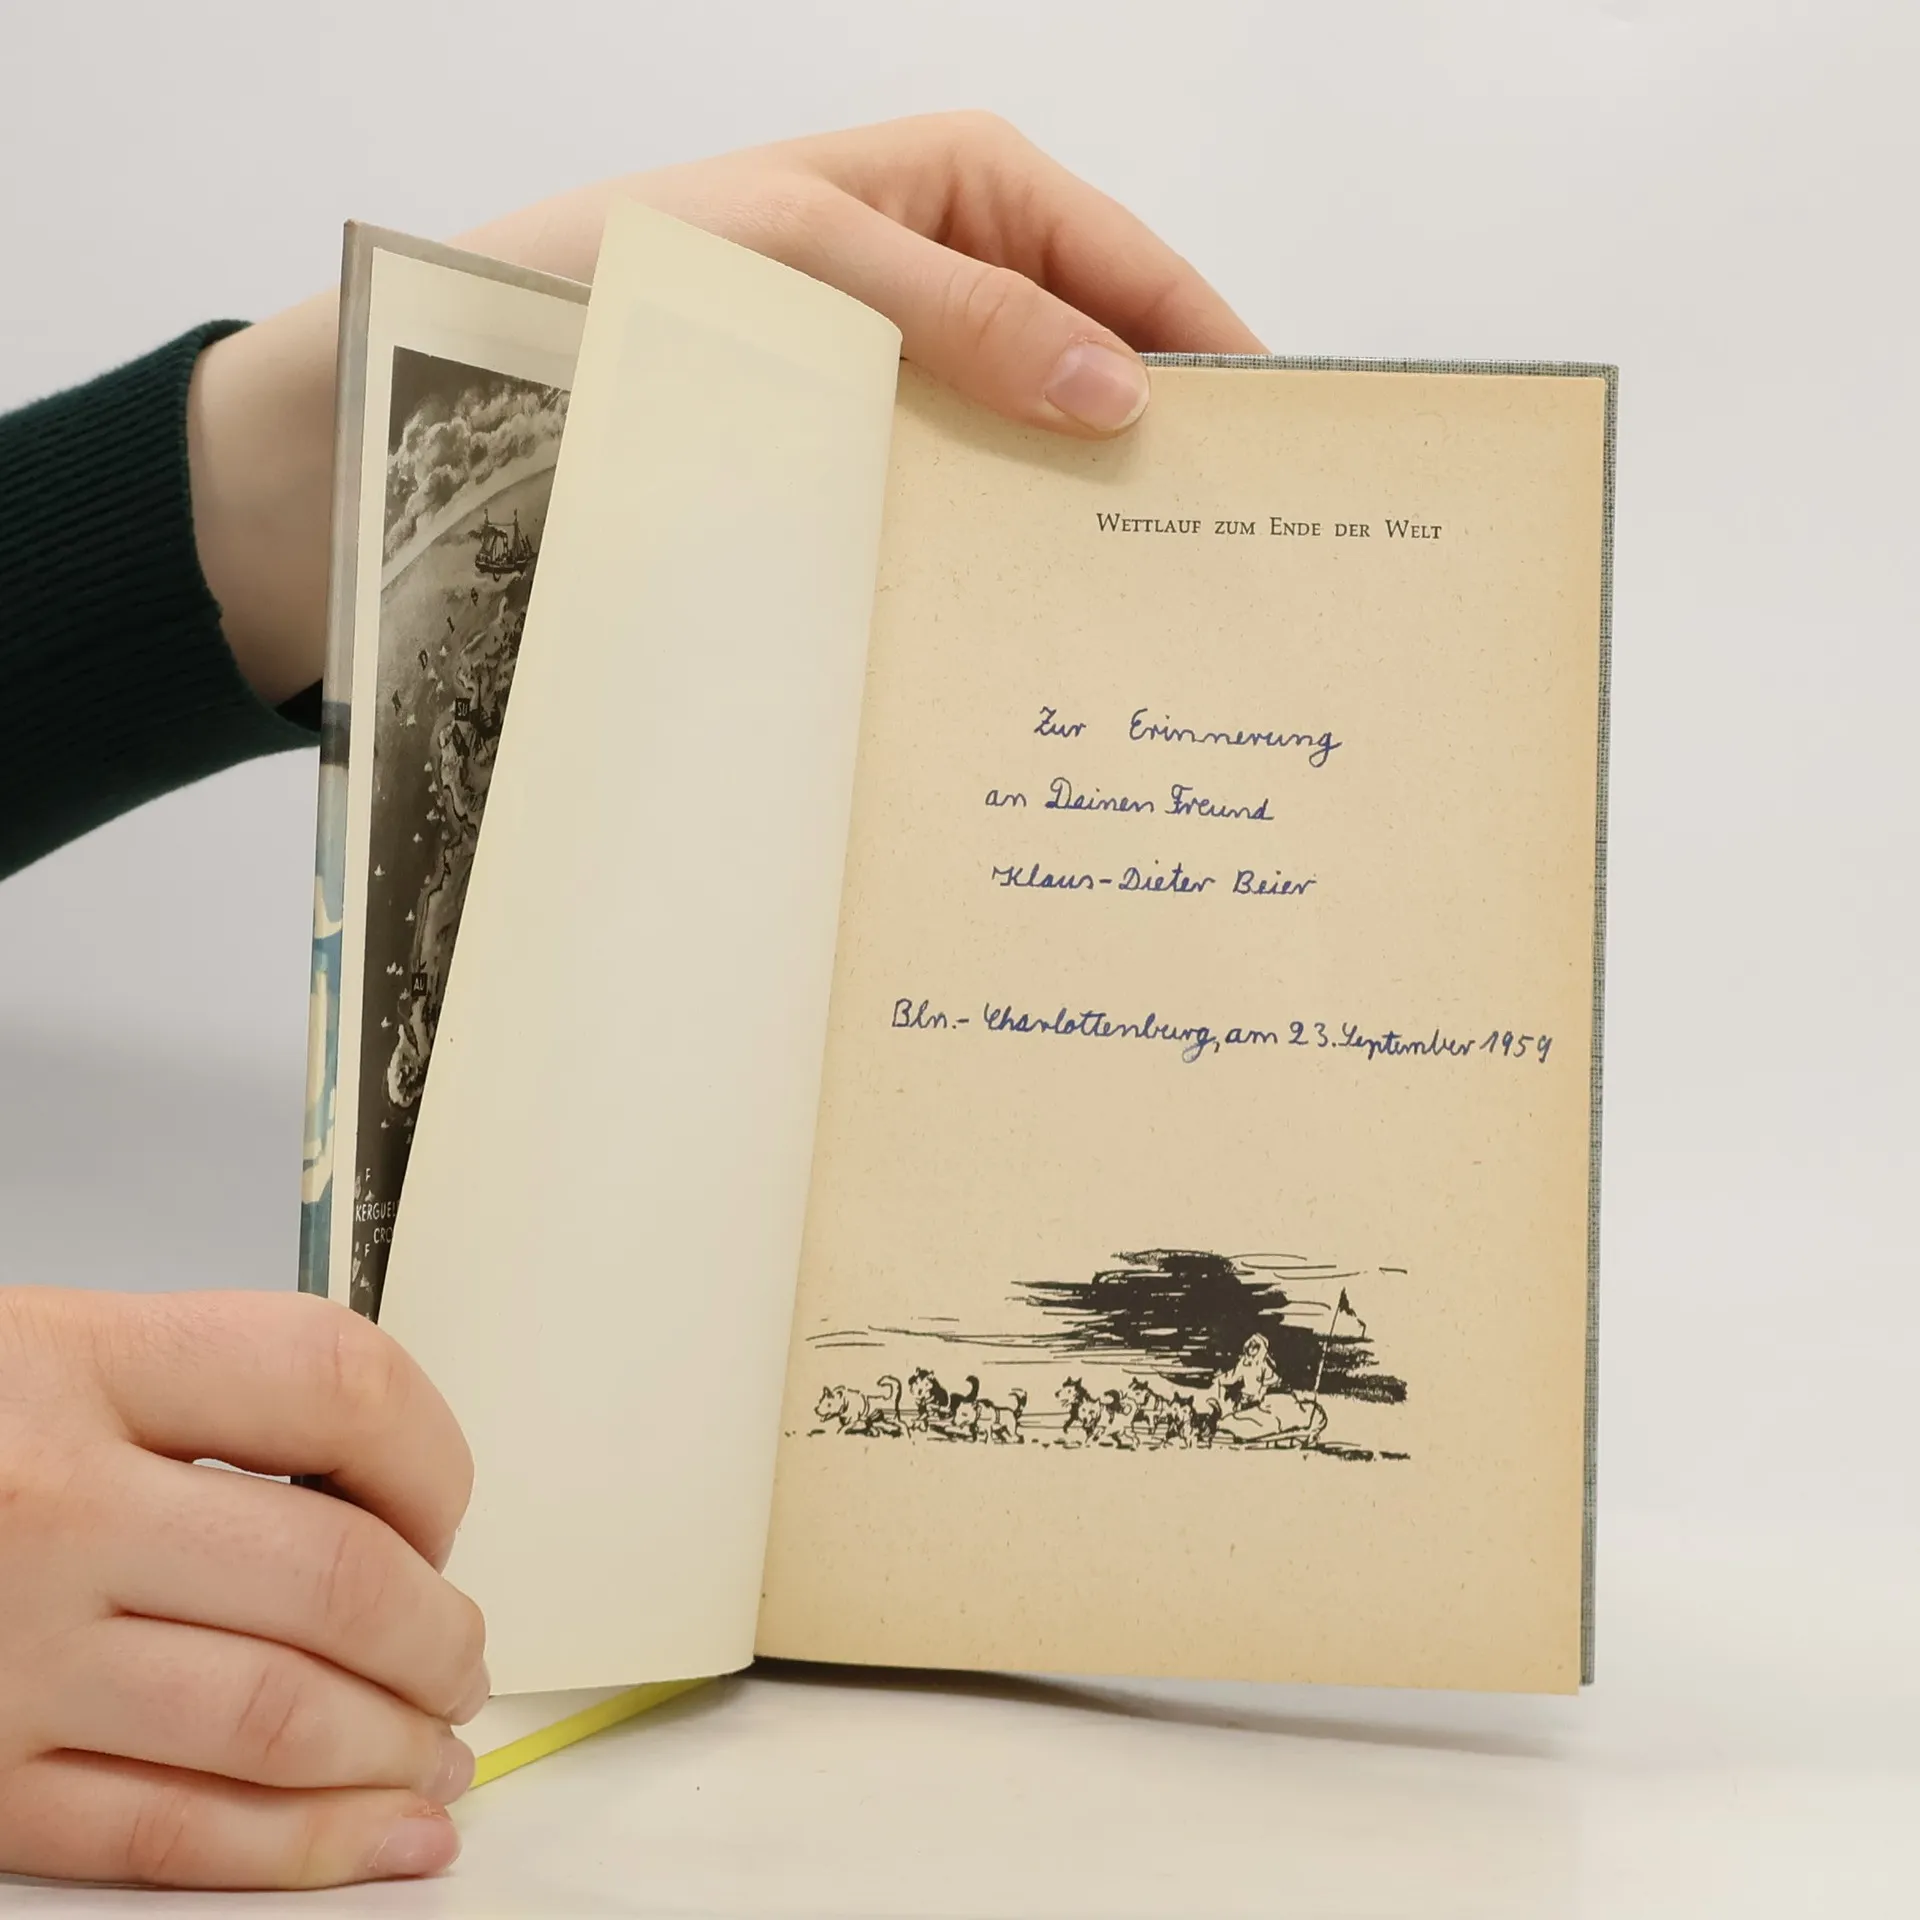 Wettlauf zum Ende der Welt
Zur Erinnerung
an Deinen Freund
Klaus-Dieter Beier
Bln.- Charlottenburg, am 23. September 1959
SU
AU
F
KERGUEL
CRO
F